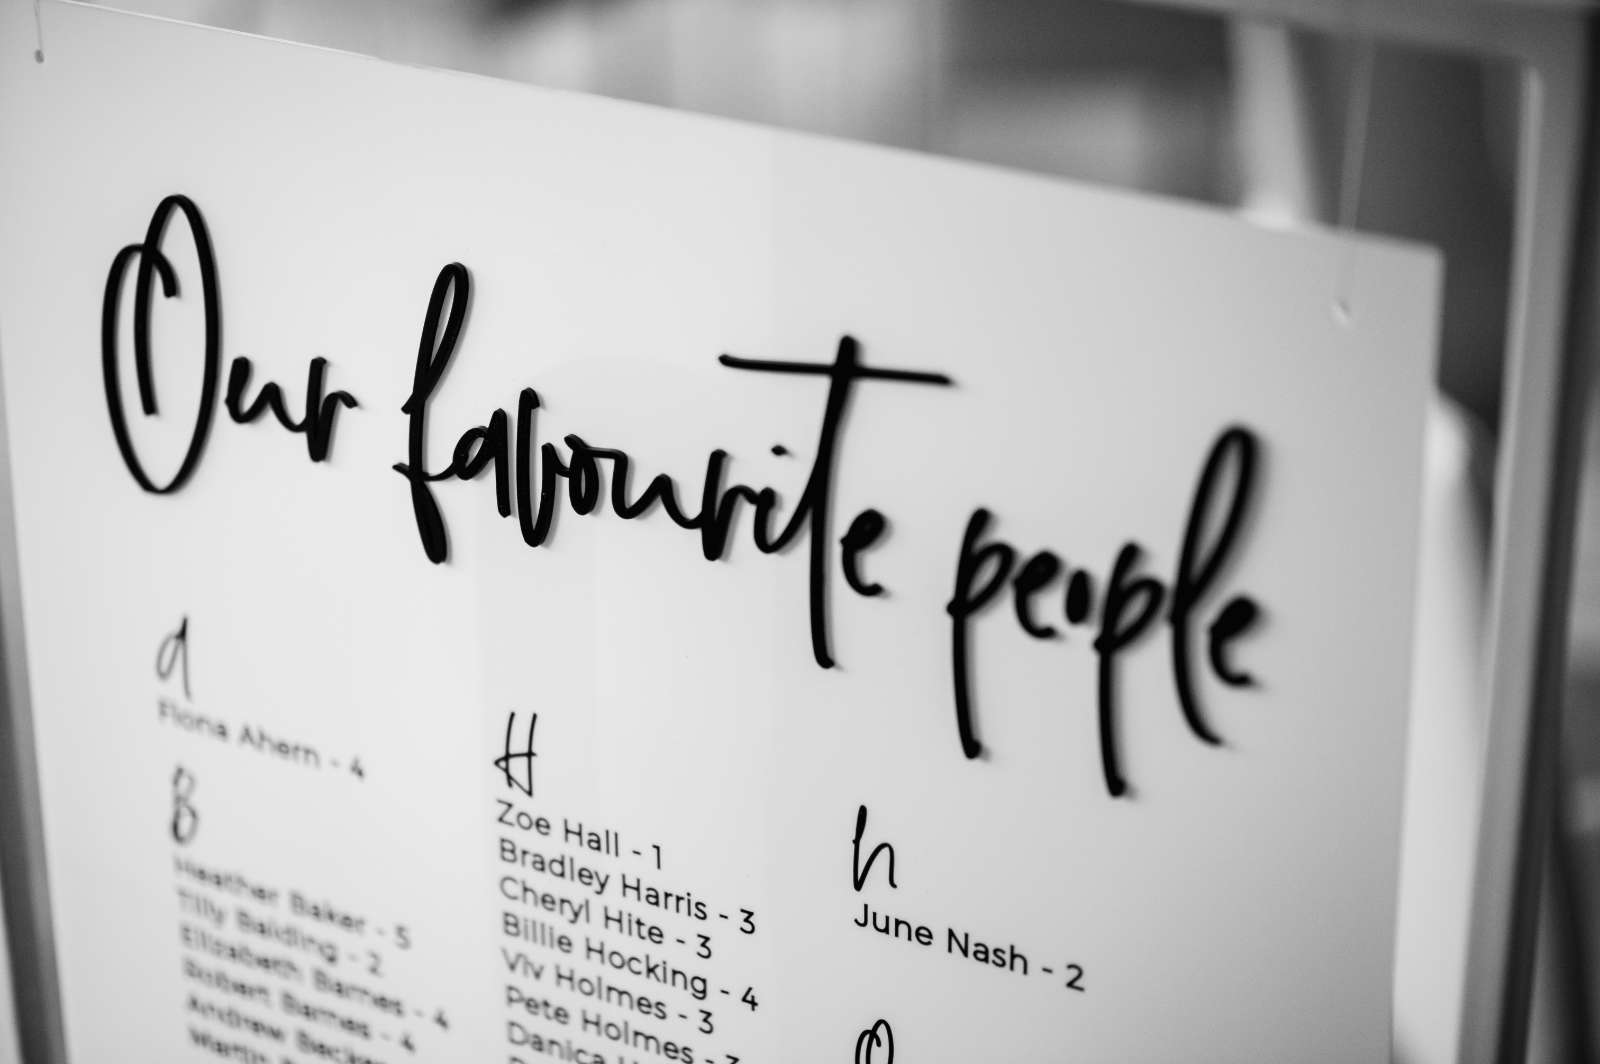 Our favourite people
A
Fiona Ahern - 4
B
Heather Baker - 5
Tilly Balding - 2
Elizabeth Barnes - 4
Robert Barnes - 4
Andrew Becker
Martin
H
Zoe Hall - 1
Bradley Harris - 3
Cheryl Hite - 3
Billie Hocking - 4
Viv Holmes - 3
Pete Holmes - 3
Danica
n
June Nash - 2
O